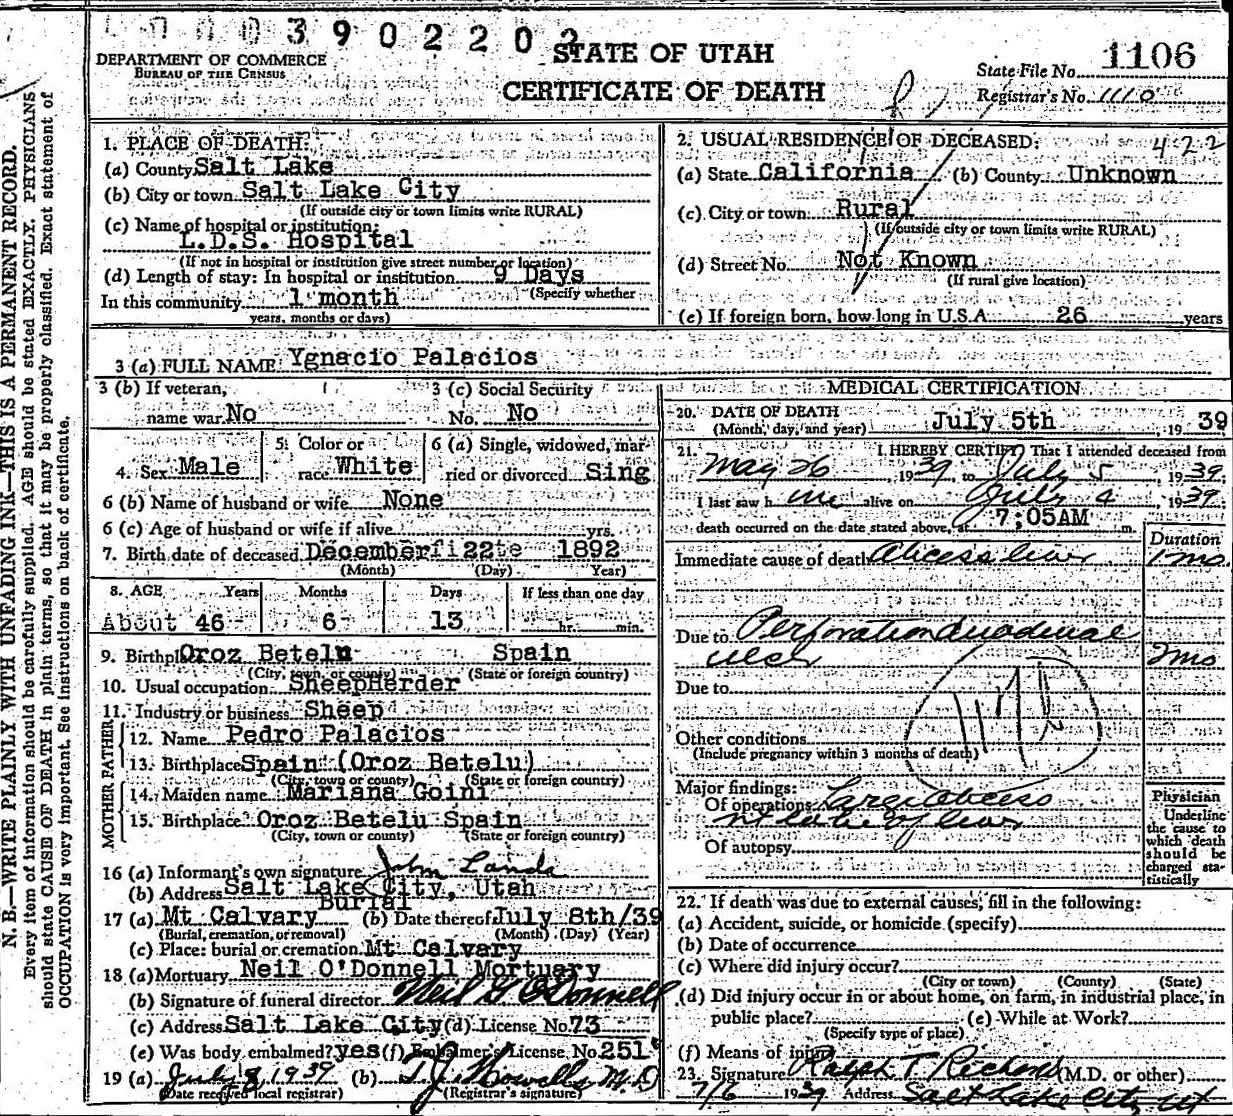 390220
STATE OF UTAH
CERTIFICATE OF DEATH
DEPARTMENT OF COMMERCE
BUREAU OF THE CENSUS
State File No. 1106
Registrar's No. 1110
N. B.—WRITE PLAINLY WITH UNFADING INK—THIS IS A PERMANENT RECORD.
Every item of information should be carefully supplied. AGE should be stated EXACTLY. PHYSICIANS
should state CAUSE OF DEATH in plain terms, so that it may be properly classified. Exact statement of
OCCUPATION is very important. See instructions on back of certificate.
1. PLACE OF DEATH:
(a) County Salt Lake
(b) City or town Salt Lake City
(If outside city or town limits write RURAL)
(c) Name of hospital or institution:
L.D.S. Hospital
(If not in hospital or institution give street number or location)
(d) Length of stay: In hospital or institution 9 Days
(Specify whether
In this community 1 month
years, months or days)
2. USUAL RESIDENCE OF DECEASED: 422
(a) State California (b) County Unknown
(c) City or town Rural
(If outside city or town limits write RURAL)
(d) Street No. Not Known
(If rural give location)
(e) If foreign born, how long in U.S.A. 26 years
3 (a) FULL NAME Ygnacio Palacios
3 (b) If veteran, name war No
3 (c) Social Security No. No
4. Sex Male
5. Color or race White
6 (a) Single, widowed, married or divorced Sing
6 (b) Name of husband or wife None
6 (c) Age of husband or wife if alive yrs.
7. Birth date of deceased December 22 1892
(Month) (Day) Year)
8. AGE Years Months Days If less than one day
About 46 6 13 hr. min.
9. Birthplace Oroz Betelu Spain
(City, town, or county) (State or foreign country)
10. Usual occupation SheepHerder
11. Industry or business Sheep
FATHER
12. Name Pedro Palacios
13. Birthplace Spain (Oroz Betelu)
(City, town or county) (State or foreign country)
MOTHER
14. Maiden name Mariana Goini
15. Birthplace Oroz Betelu Spain
(City, town or county) (State or foreign country)
16 (a) Informant's own signature John Landa
(b) Address Salt Lake City, Utah
Burial
17 (a) Mt Calvary (b) Date thereof July 8th/39
(Burial, cremation, or removal) (Month) (Day) (Year)
(c) Place: burial or cremation Mt Calvary
18 (a) Mortuary Neil O'Donnell Mortuary
(b) Signature of funeral director Neil O'Donnell
(c) Address Salt Lake City (d) License No. 73
(e) Was body embalmed? yes (f) Embalmer's License No. 251
19 (a) July 8, 1939 (b) M.D
(Date received local registrar) (Registrar's signature)
MEDICAL CERTIFICATION
20. DATE OF DEATH July 5th, 19 39
(Month, day, and year)
21. I HEREBY CERTIFY That I attended deceased from
May 26 1939 to July 5, 1939.
I last saw h im alive on July 4 1939.
death occurred on the date stated above, at 7:05AM m.
Duration
Immediate cause of death Abcess liver 1 mo.
Due to Perforation duodenal
ulcer 2mo
Due to
Other conditions
(Include pregnancy within 3 months of death)
Major findings:
Of operations Large abcess
rt lobe of liver
Of autopsy
Physician
Underline
the cause to
which death
should be
charged sta-
tistically
22. If death was due to external causes, fill in the following:
(a) Accident, suicide, or homicide (specify)
(b) Date of occurrence
(c) Where did injury occur?
(City or town) (County) (State)
(d) Did injury occur in or about home, on farm, in industrial place, in
public place? (e) While at Work?
(Specify type of place)
(f) Means of injury
23. Signature Ralph T. Richards (M.D. or other)
7/6 1939 Address Salt Lake City Ut